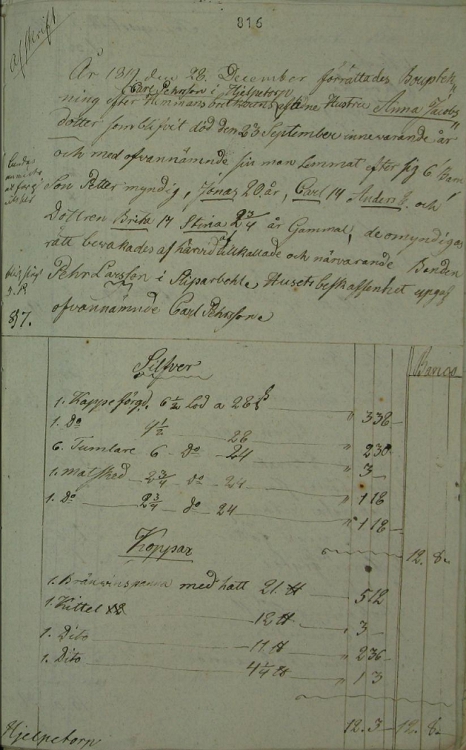 816
Afskrift
År 1817 den 28. December förrättades Bouptek-
ning efter Hemmans
Carl Pehrsson i Hjelpetorp
Hustru Anna Jacobs
dotter som blifvit död den 23 September innevarande år
och med ofvannämnde sin man lemnat efter sig 6 barn
Son Petter myndig, Jonas 20 år, Carl 14 Anders 8, och
Dottren Brita 17 Stina 2 3/4 år Gammal, de omyndigas
rätt bevakades af härvid tilkallade och närvarande Bonden
Pehr Larsson i Husets beskaffenhet uppgaf
ofvannämnde Carl Pehrsson
837.
Silfver
Banco
1. 6 1/2 Lod a 28 ß " 3 38 -
1. Do 4 1/2 28 " 2 30 -
6. Tumlare 6 Do 24 " 3 -
1. matsked 2 3/4 do 24 " 1 18
1. Do 2 3/4 do 24 " 1 18 -
12. 8. -
Koppar
1. Bränvinspanna med hatt 21 ℔ 5 12
1. Kittel 12 ℔ " 3 -
1. Dito 11 ℔ " 2 36 -
1. Dito 4 1/4 ℔ " 1 3
12. 3 - 12. 8. -
Hjelpetorp